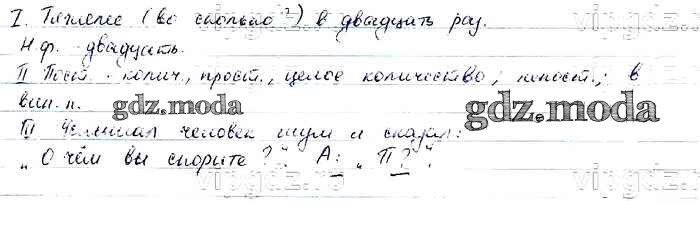 I. Тяжелее (во сколько?) в двадцать раз.
Н.ф. - двадцать.
II Пост. - колич., прост., целое количество, непост.; в
вин. п.
gdz.moda gdz.moda
III Услышал человек шум и сказал:
„О чём вы спорите?“. А: „П?“.
vipgdz.ru